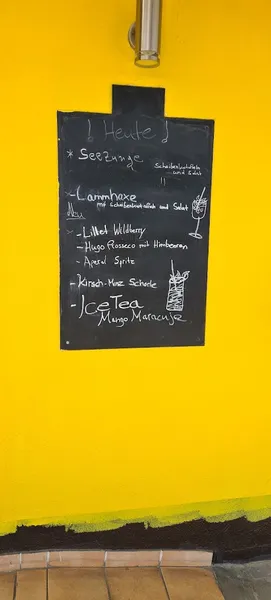 ! Heute !
* Seezunge
Scheibenkartoffeln
und Salat
!!
- Lammhaxe
mit Scheibenkartoffeln und Salat
Neu
- Lillet Wildberry
- Hugo Prosecco mit Himbeeren
- Aperol Spritz
- Kirsch-Minz Schorle
- Ice Tea
Mango Maracuja